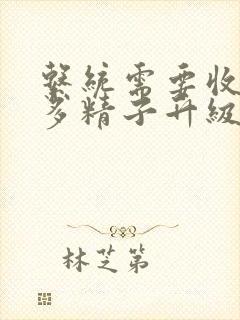 繫統需要收
多精子升級
林芝第